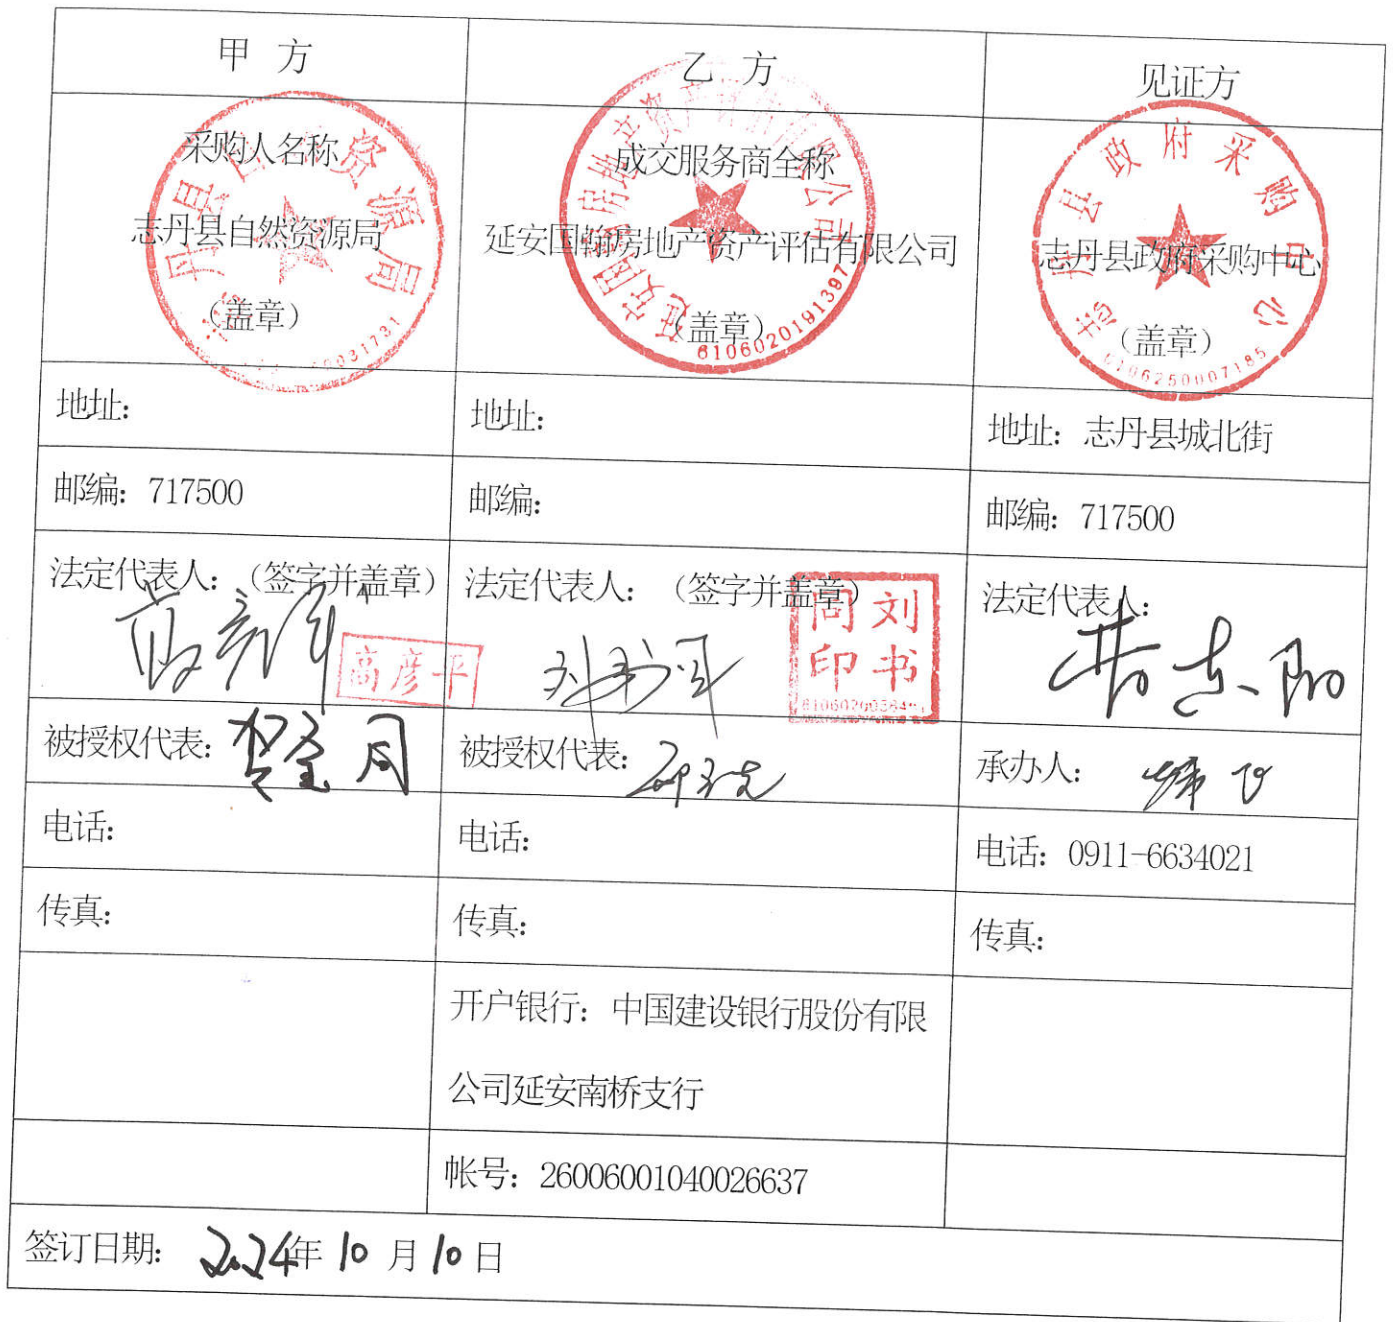 甲 方
乙 方
见证方
采购人名称
志丹县自然资源局
（盖章）
成交服务商全称
延安国翰房地产资产评估有限公司
（盖章）
6106020191397
志丹县政府采购中心
志丹县政府采购中心
（盖章）
6106250007185
地址：
地址：
地址：志丹县城北街
邮编：717500
邮编：
邮编：717500
法定代表人：（签字并盖章）
高彦平
法定代表人：（签字并盖章）
刘书同印
法定代表人：
被授权代表：
被授权代表：
承办人：
电话：
电话：
电话：0911-6634021
传真：
传真：
传真：
开户银行：中国建设银行股份有限
公司延安南桥支行
帐号：26006001040026637
签订日期：2024年10月10日